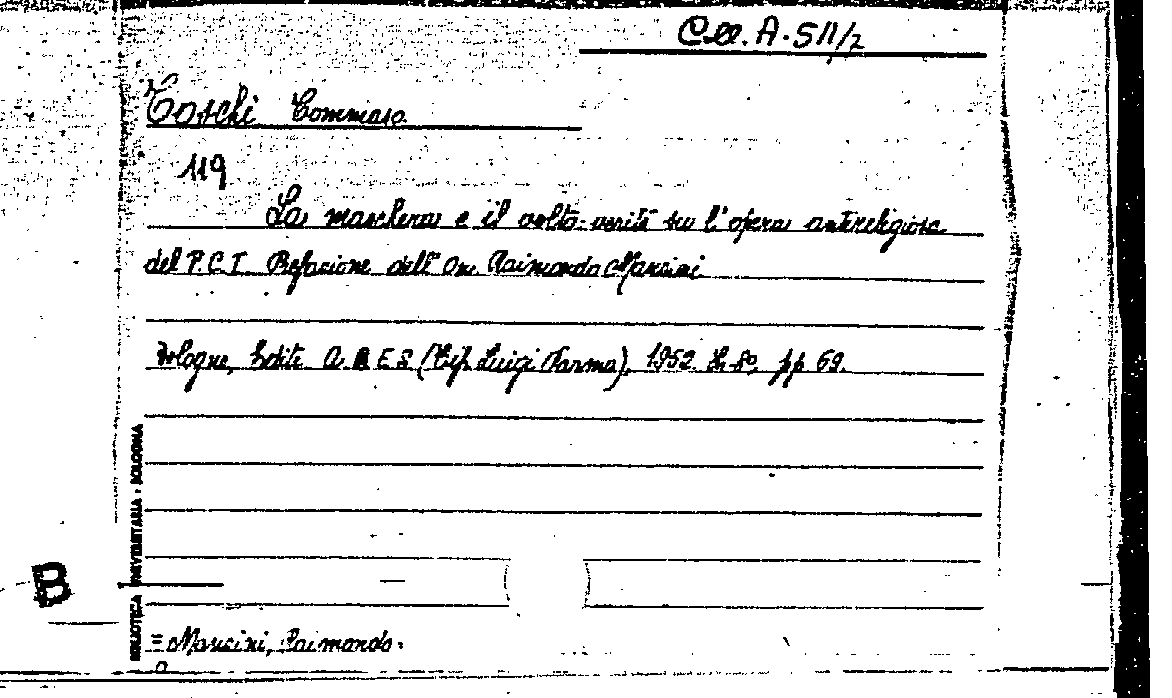 Coll. A. 511/2
Toschi Tommaso
119
La maschera e il volto: verità su l'opera antireligiosa
del P.C.I. Prefazione dell'On. Raimondo Manzini
Bologna, Edite A.B.E.S. (Tip. Luigi Parma), 1952. In-8º, pp 69.
BIBLIOTECA UNIVERSITARIA - BOLOGNA
B
= Manzini, Raimondo.